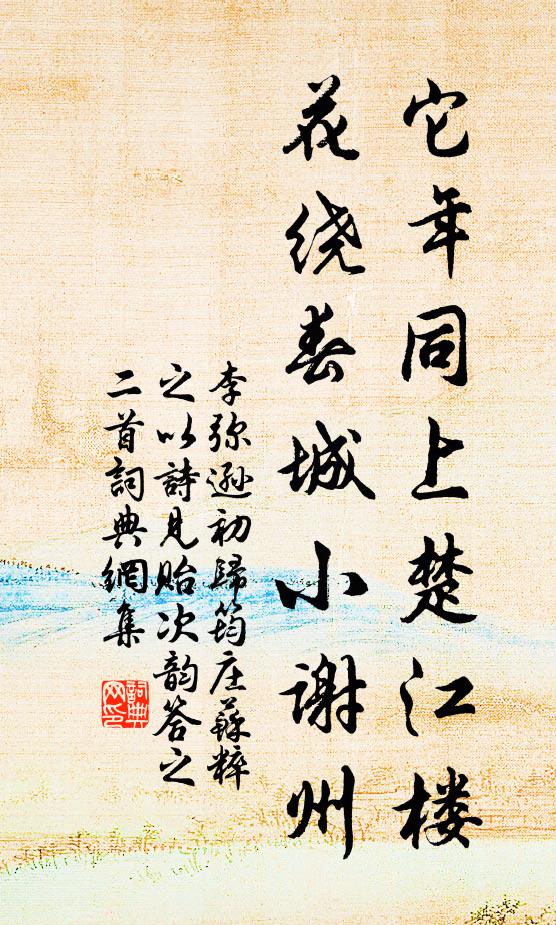 它年同上楚江楼
花绕春城小谢州
李弥逊初歸筠庄蘇粹
之以詩見貽次韵答之
二首詞典網集
詞典
网印